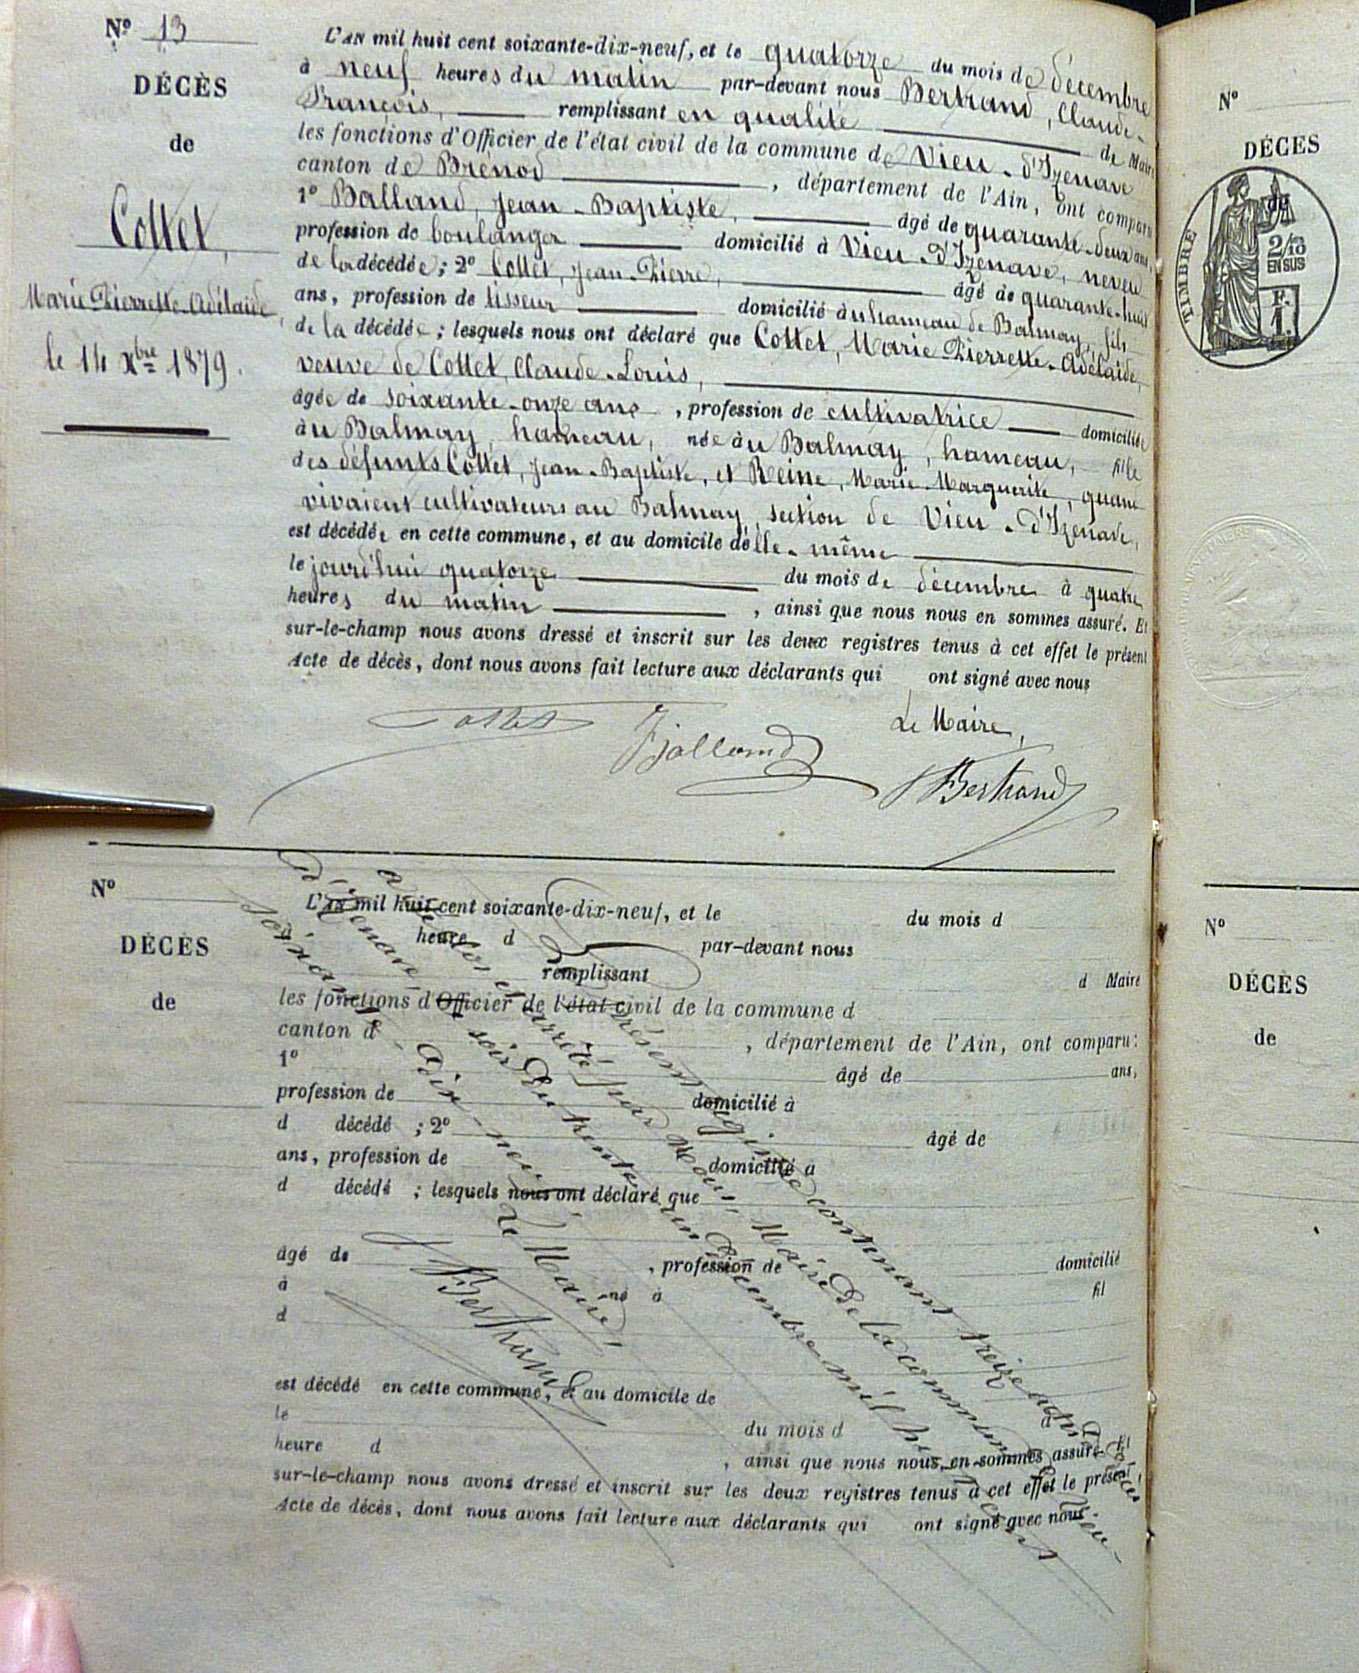 Nº 13
DÉCÈS
de
Cottet,
Marie Pierrette Adélaïde,
le 14 Xbre 1879.
L'AN mil huit cent soixante-dix-neuf, et le quatorze du mois de décembre
à neuf heures du matin par-devant nous Bertrand, Claude-
François, remplissant en qualité de Maire
les fonctions d'Officier de l'état civil de la commune de Vieu-d'Izenave
canton de Brénod, département de l'Ain, ont comparu
1º Balland, Jean-Baptiste, âgé de quarante-deux ans,
profession de boulanger domicilié à Vieu-d'Izenave, neveu
de la décédée; 2º Cottet, Jean-Pierre, âgé de quarante-huit
ans, profession de tisseur domicilié au hameau de Balmay, fils
de la décédée; lesquels nous ont déclaré que Cottet, Marie Pierrette-Adélaïde,
veuve de Cottet, Claude-Louis,
âgée de soixante-onze ans, profession de cultivatrice domiciliée
au Balmay, hameau, née au Balmay, hameau, fille
des défunts Cottet, Jean-Baptiste, et Reine, Marie-Marguerite, quand
vivaient cultivateurs au Balmay, section de Vieu-d'Izenave,
est décédée en cette commune, et au domicile d'elle-même
le jourd'hui quatorze du mois de décembre à quatre
heures du matin, ainsi que nous nous en sommes assuré. Et
sur-le-champ nous avons dressé et inscrit sur les deux registres tenus à cet effet le présent
Acte de décès, dont nous avons fait lecture aux déclarants qui ont signé avec nous
Le Maire,
Cottet JBalland Bertrand
Nº
DÉCÈS
de
L'AN mil huit cent soixante-dix-neuf, et le du mois d
heure d par-devant nous
remplissant d Maire
les fonctions d'Officier de l'état civil de la commune d
canton d, département de l'Ain, ont comparu:
1º âgé de ans,
profession de domicilié à
d décédé ; 2º âgé de
ans, profession de domicilié à
d décédé ; lesquels nous ont déclaré que
âgé de, profession de domicilié
à né à fil
d
est décédé en cette commune, et au domicile de
le du mois d
heure d, ainsi que nous nous en sommes assuré. Et
sur-le-champ nous avons dressé et inscrit sur les deux registres tenus à cet effet le présent
Acte de décès, dont nous avons fait lecture aux déclarants qui ont signé avec nous.
Le présent registre contenant treize actes de décès
a été clos et arrêté par Nous, Maire de la commune de Vieu-
d'Izenave le soir du trente-un décembre mil huit cent
soixante-dix-neuf.
Le Maire,
Bertrand
Nº
DÉCÈS
de
TIMBRE
2/10
EN SUS
F.
1.
Nº
DÉCÈS
de